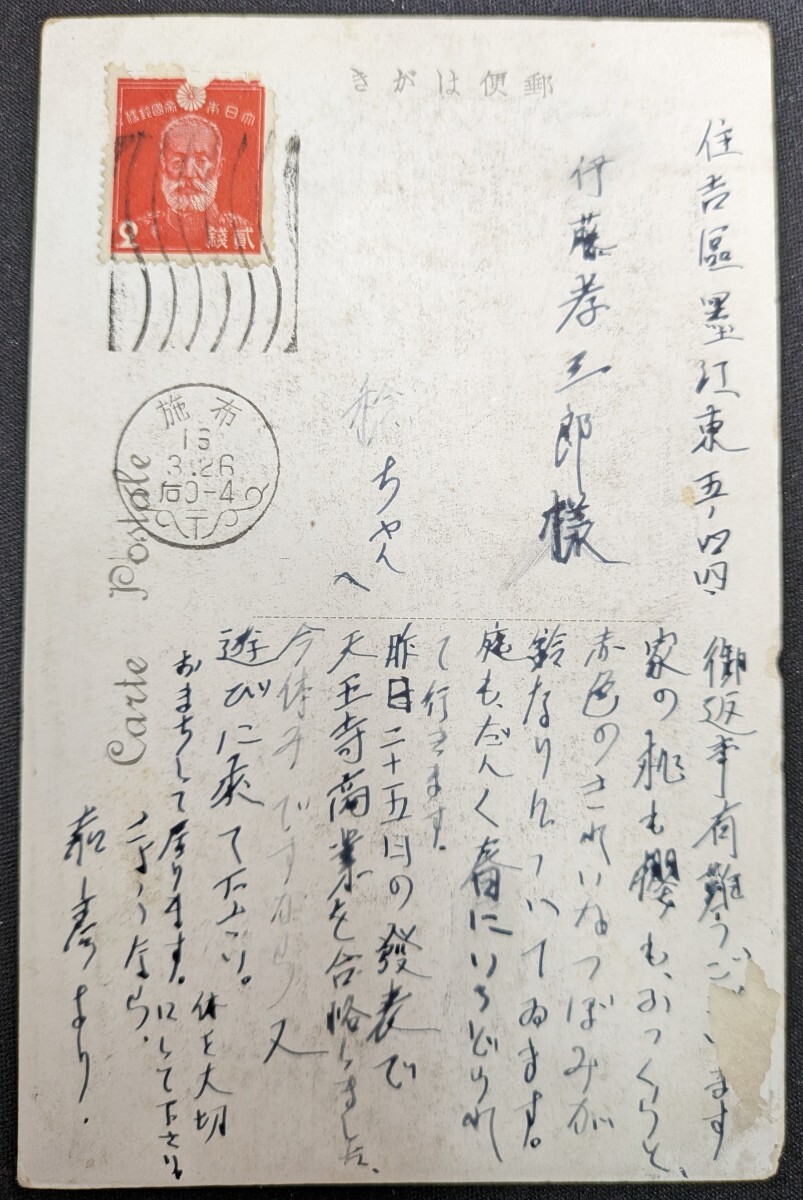 郵便はがき
大日本帝國郵便
貳錢
2
布施
15
3.26
后0-4
Carte Postale
住吉區墨江東五ノ四四
伊藤孝三郎様
ちゃんへ
御返事有難うございます
家の桃も櫻も、ふっくらと、
赤色のきれいなつぼみが
鈴なりについてゐます。
庭も、だんく春にいろどられ
て行きます。
昨日二十五日の發表で
天王寺商業を合格しました、
今休みですから又
遊びに來て下さい。
おまちして居ります。
体を大切にして下さい
さうなら、
より.